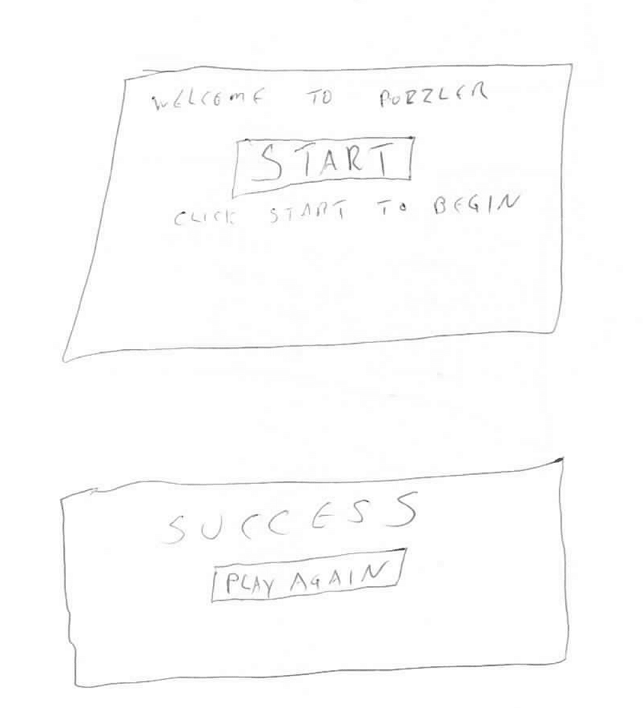 WELCOME TO PUZZLER
START
CLICK START TO BEGIN
SUCCESS
PLAY AGAIN